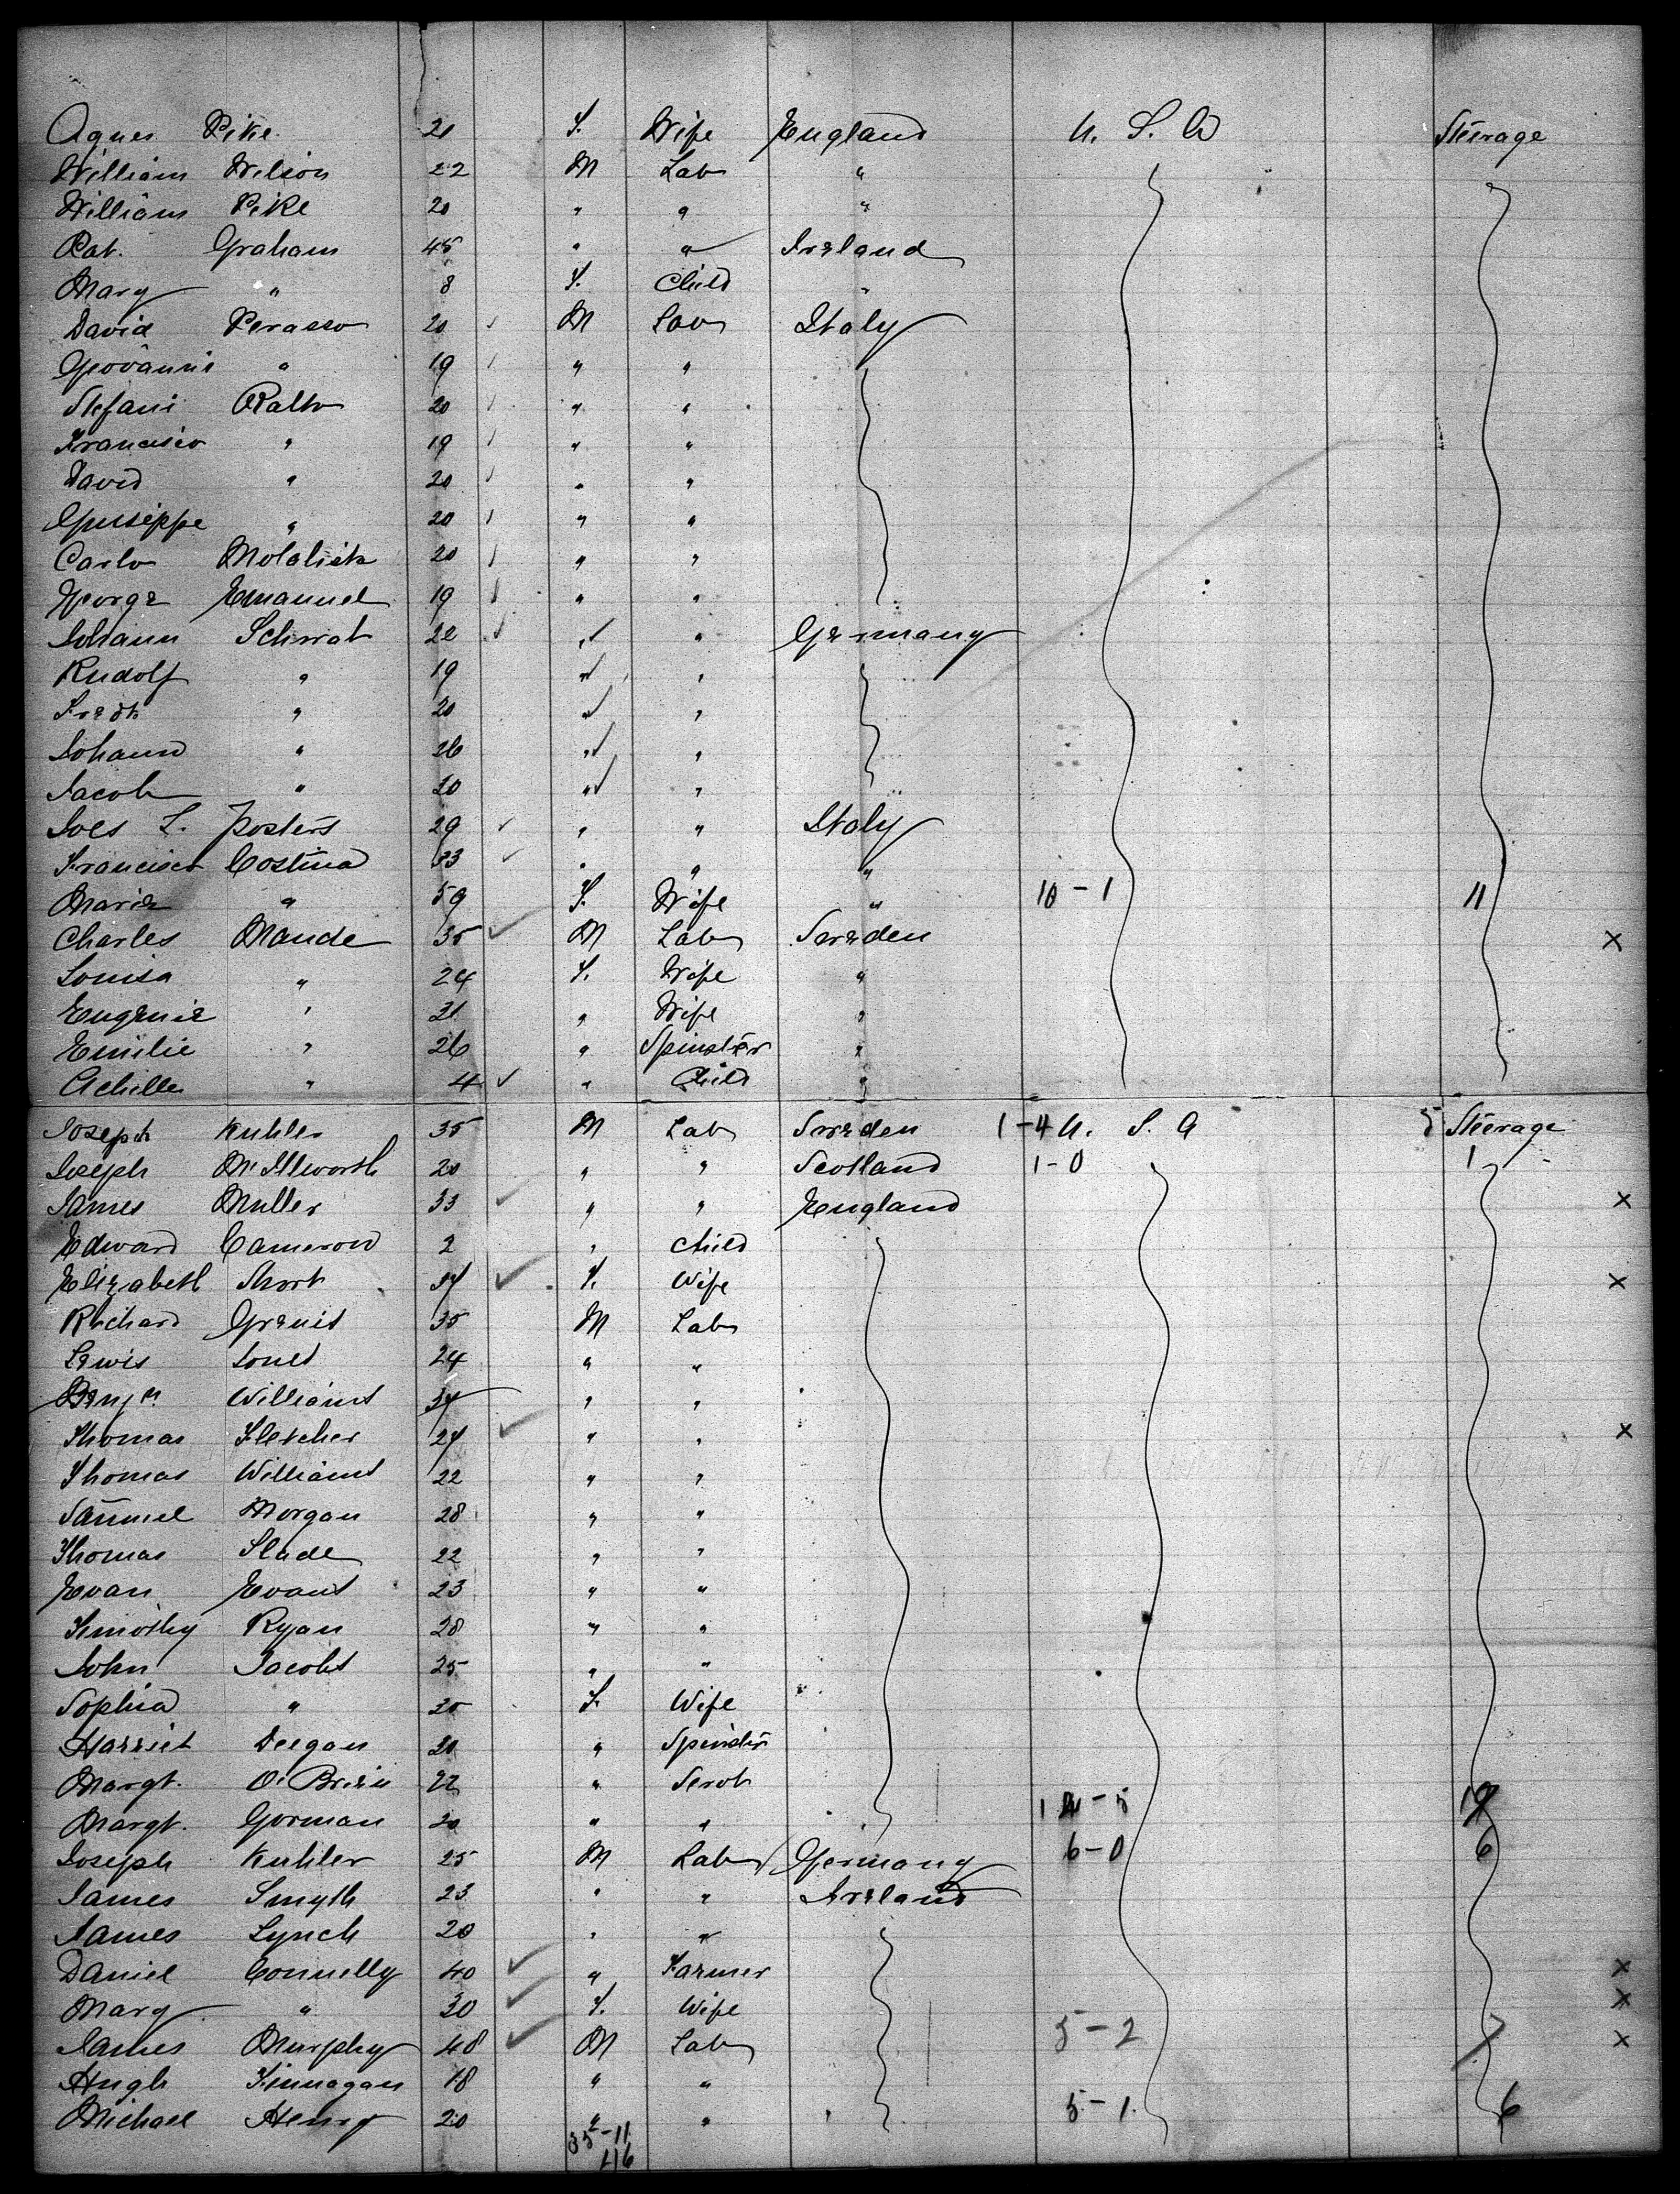 Agnes Pike 20 F. Wife England U. S. A Steerage
William Wilson 22 M Lab "
William Pike 20 " " "
Pat. Graham 45 " " Ireland
Mary " 8 F. Child "
David Perasso 20 M Lab Italy
Giovanni " 19 " "
Stefani Ratto 20 " "
Francisco " 19 " "
David " 20 " "
Guiseppe " 20 " "
Carlo 20 " "
George Emanuel 19 " "
Johann Schwab 22 " " Germany
Rudolf " 19 " "
Fredk " 20 " "
Johann " 26 " "
Jacob " 20 " "
29 " " Italy
Francisco Costina 33 " " "
Maria " 59 F. Wife " 10 - 1 11
Charles Mande 35 M Lab Sweden x
Louisa " 24 F. Wife "
Eugenie " 31 " Wife "
Emilie " 26 " Spinster "
Achille " 4 " Child "
Joseph Kuhler 35 M Lab Sweden 1-4 U. S. A 5 Steerage
Joseph McIllworth 20 " " Scotland 1-0 1
James Muller 33 " " England x
Edward Cameron 2 " Child
Elizabeth Short 34 F. Wife x
Richard 35 M Lab
Lewis Jones 24 " "
Benjn. Williams 34 " "
Thomas Fletcher 27 " " x
Thomas Williams 22 " "
Samuel Morgan 28 " "
Thomas Slade 22 " "
Evan Evans 23 " "
Timothy Ryan 28 " "
John Jacobs 25 " "
Sophia " 25 F. Wife
Harriet Deegan 20 " Spinster
Margt. O'Brien 22 " Servt
Margt. Gorman 20 " "
Joseph Kuhler 25 M Lab Germany 6-0 6
James Smyth 23 " " Ireland
James Lynch 20 " "
Daniel Connelly 40 " Farmer x
Mary " 30 F. Wife x
James Murphy 48 M Lab 5-2 7 x
Hugh Finnagan 18 " "
Michael Henry 20 " " 5-1 6
35-11